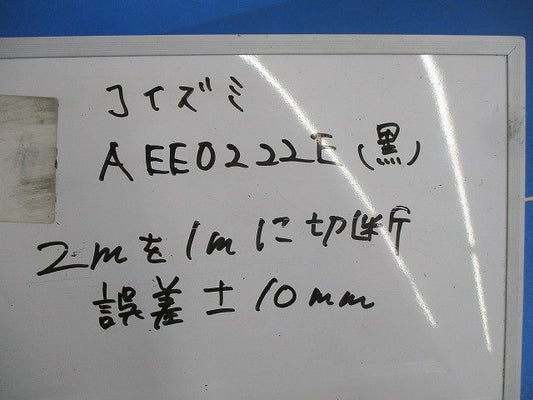 コイズミ
AEE0222E(黒)
2mを1mに切断
誤差±10mm